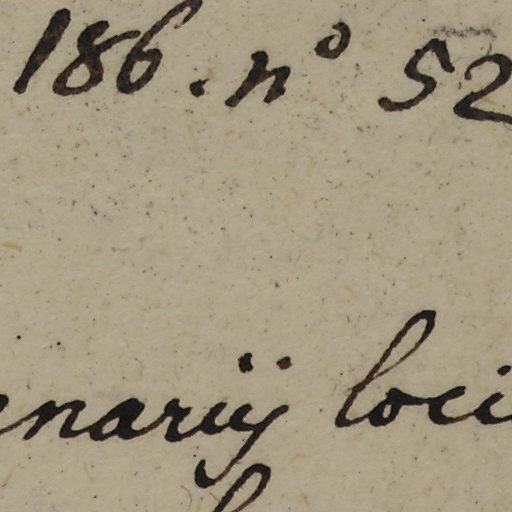 186. nº 52
narij loci